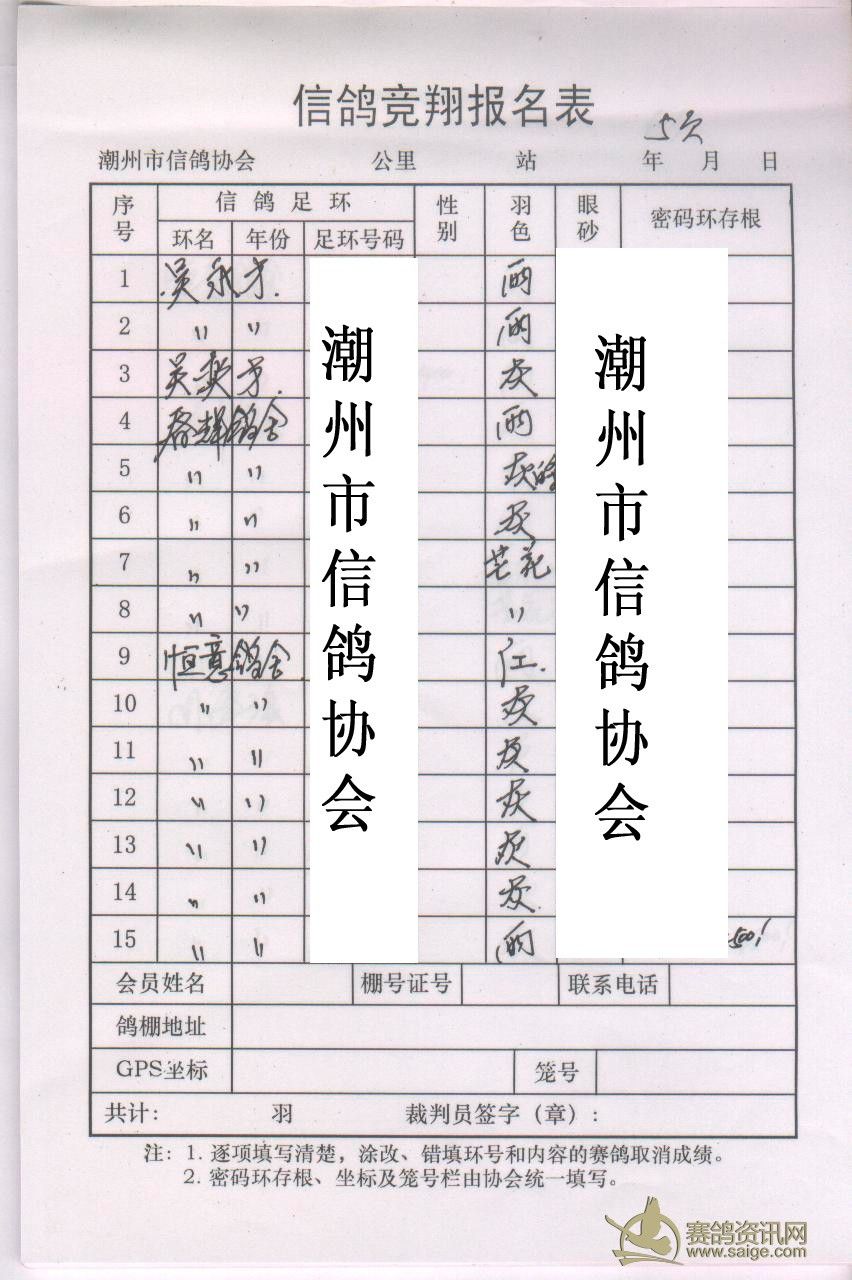 信鸽竞翔报名表
5次
潮州市信鸽协会 公里 站 年 月 日
序号 信鸽足环 性别 羽色 眼砂 密码环存根
环名 年份 足环号码
1 吴永才 雨
2 〃 〃 雨
3 吴 才 灰
4 春辉鸽舍 雨
5 〃 〃 灰
6 〃 〃 灰
7 〃 〃 芒花
8 〃 〃 〃
9 恒意鸽舍 红
10 〃 〃 灰
11 〃 〃 灰
12 〃 〃 灰
13 〃 〃 灰
14 〃 〃 灰
15 〃 〃 雨
潮州市信鸽协会
潮州市信鸽协会
会员姓名 棚号证号 联系电话
鸽棚地址
GPS坐标 笼号
共计: 羽 裁判员签字(章):
注: 1. 逐项填写清楚,涂改、错填环号和内容的赛鸽取消成绩。
2. 密码环存根、坐标及笼号栏由协会统一填写。
赛鸽资讯网
www.saige.com